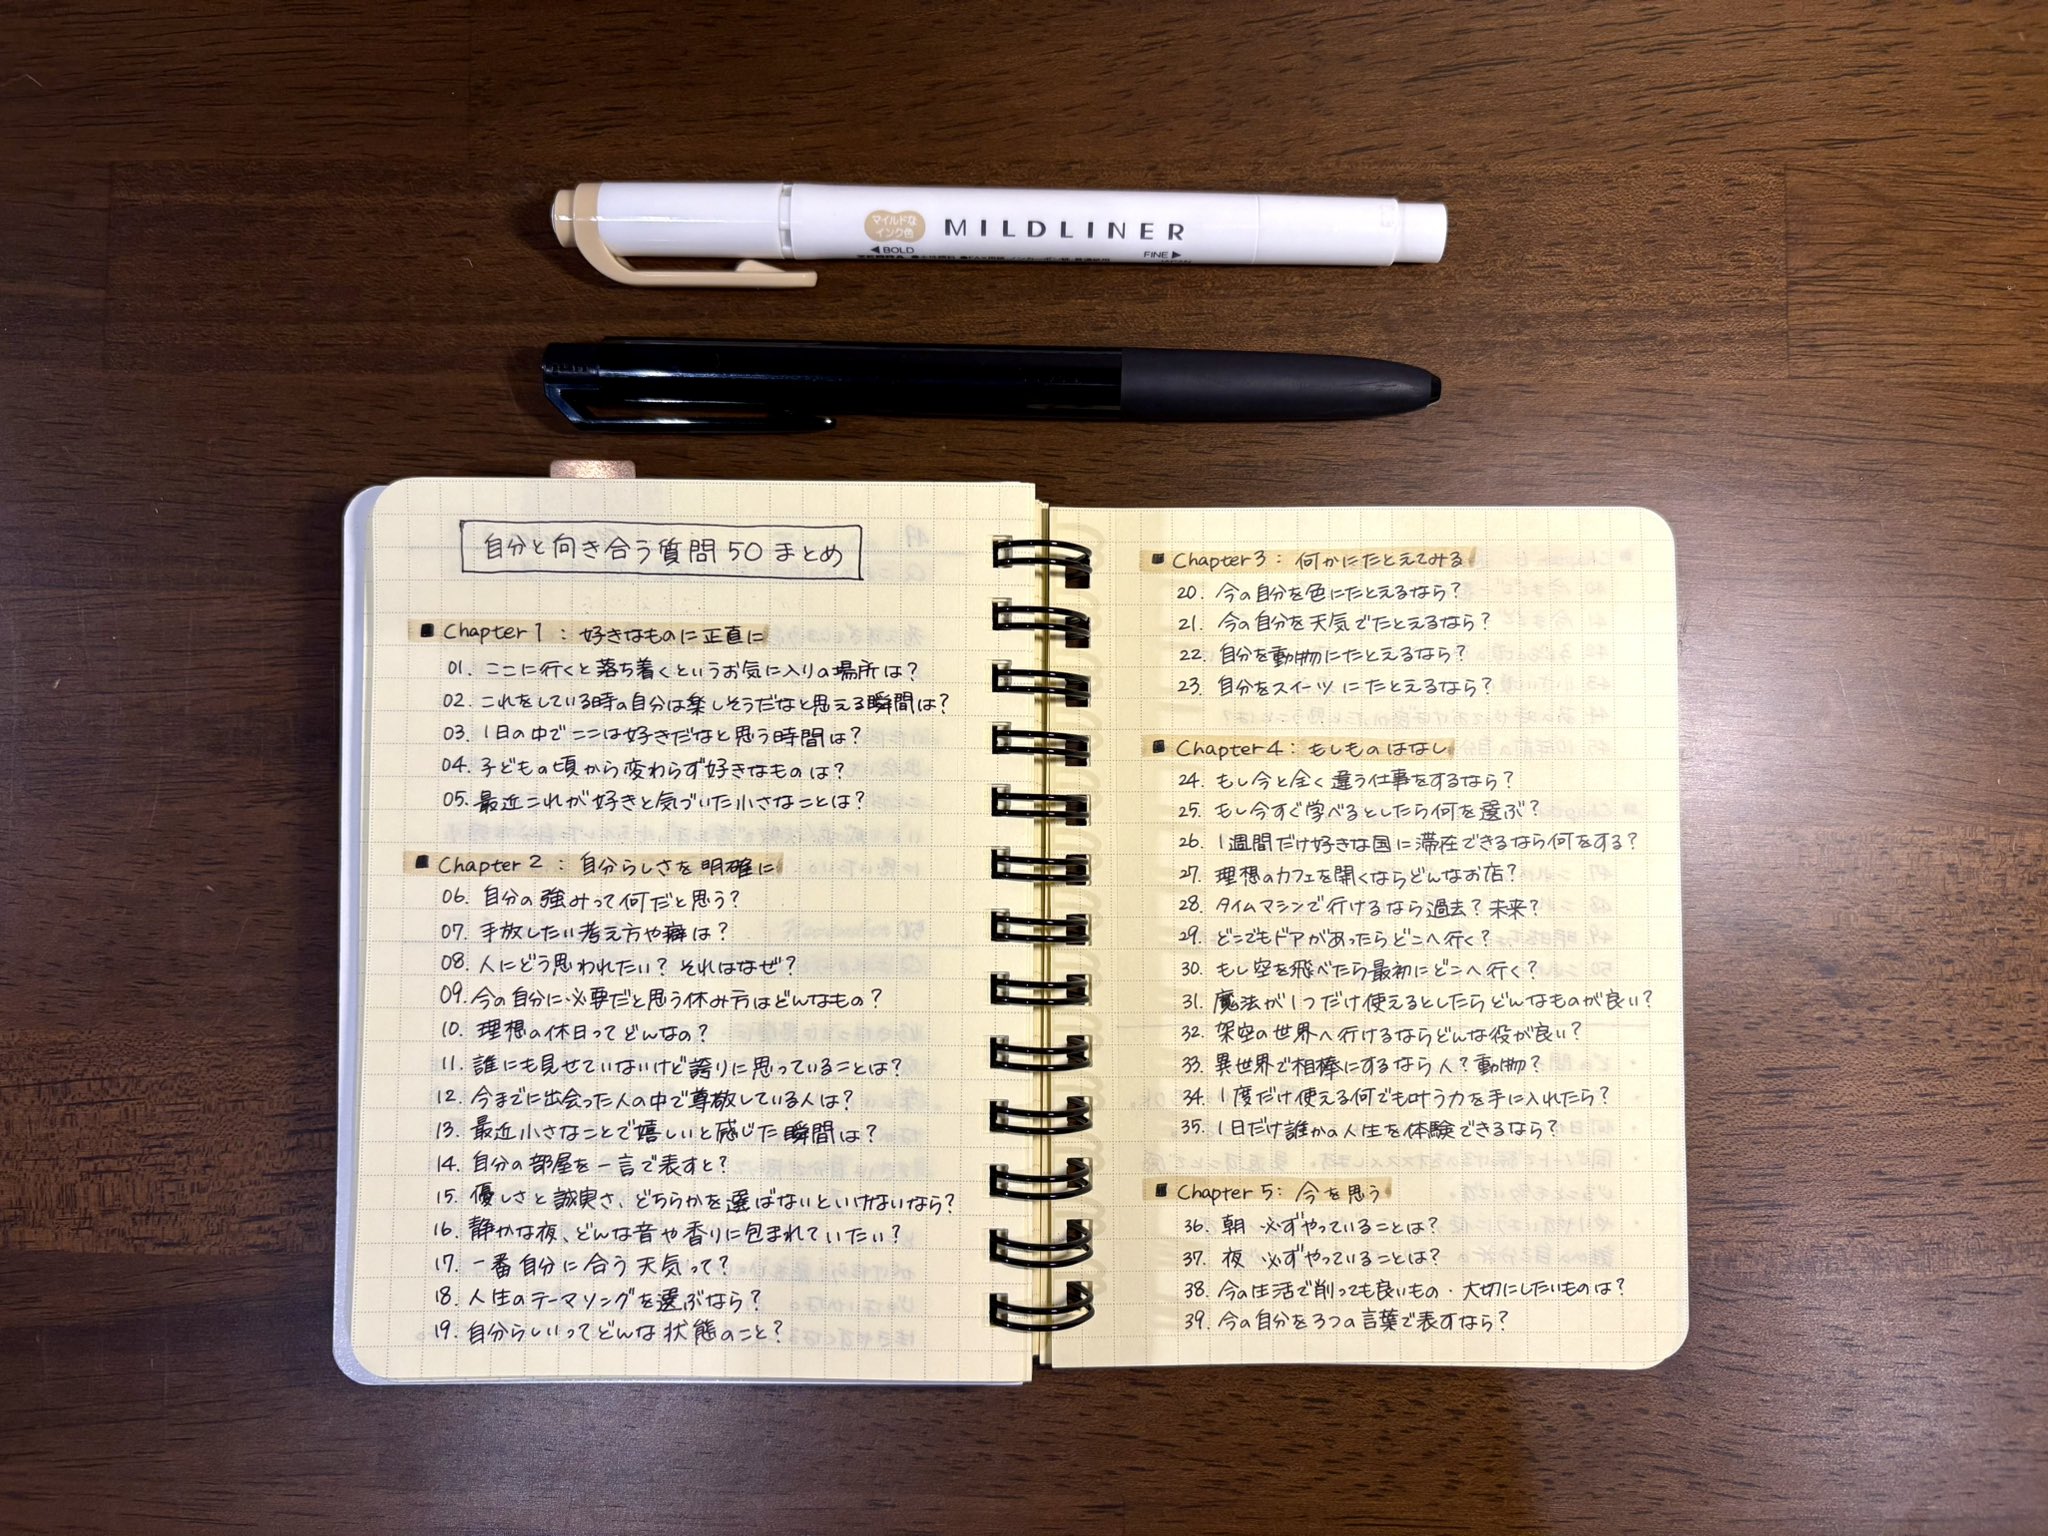 マイルドな
インク色
MILDLINER
◀BOLD
FINE▶
自分と向き合う質問50まとめ
■ Chapter 1 : 好きなものに正直に
01. ここに行くと落ち着くというお気に入りの場所は?
02. これをしている時の自分は楽しそうだなと思える瞬間は?
03. 1日の中でここは好きだなと思う時間は?
04. 子どもの頃から変わらず好きなものは?
05. 最近これが好きと気づいた小さなことは?
■ Chapter 2 : 自分らしさを明確に
06. 自分の強みって何だと思う?
07. 手放したい考え方や癖は?
08. 人にどう思われたい? それはなぜ?
09. 今の自分に必要だと思う休み方はどんなもの?
10. 理想の休日ってどんなの?
11. 誰にも見せていないけど誇りに思っていることは?
12. 今までに出会った人の中で尊敬している人は?
13. 最近小さなことで嬉しいと感じた瞬間は?
14. 自分の部屋を一言で表すと?
15. 優しさと誠実さ、どちらかを選ばないといけないなら?
16. 静かな夜、どんな音や香りに包まれていたい?
17. 一番自分に合う天気って?
18. 人生のテーマソングを選ぶなら?
19. 自分らしいってどんな状態のこと?
■ Chapter 3 : 何かにたとえてみる
20. 今の自分を色にたとえるなら?
21. 今の自分を天気でたとえるなら?
22. 自分を動物にたとえるなら?
23. 自分をスイーツにたとえるなら?
■ Chapter 4 : もしものはなし
24. もし今と全く違う仕事をするなら?
25. もし今すぐ学べるとしたら何を選ぶ?
26. 1週間だけ好きな国に滞在できるなら何をする?
27. 理想のカフェを開くならどんなお店?
28. タイムマシンで行けるなら過去? 未来?
29. どこでもドアがあったらどこへ行く?
30. もし空を飛べたら最初にどこへ行く?
31. 魔法が1つだけ使えるとしたらどんなものが良い?
32. 架空の世界へ行けるならどんな役が良い?
33. 異世界で相棒にするなら人? 動物?
34. 1度だけ使える何でも叶う力を手に入れたら?
35. 1日だけ誰かの人生を体験できるなら?
■ Chapter 5 : 今を思う
36. 朝 必ずやっていることは?
37. 夜 必ずやっていることは?
38. 今の生活で削っても良いもの・大切にしたいものは?
39. 今の自分を3つの言葉で表すなら?